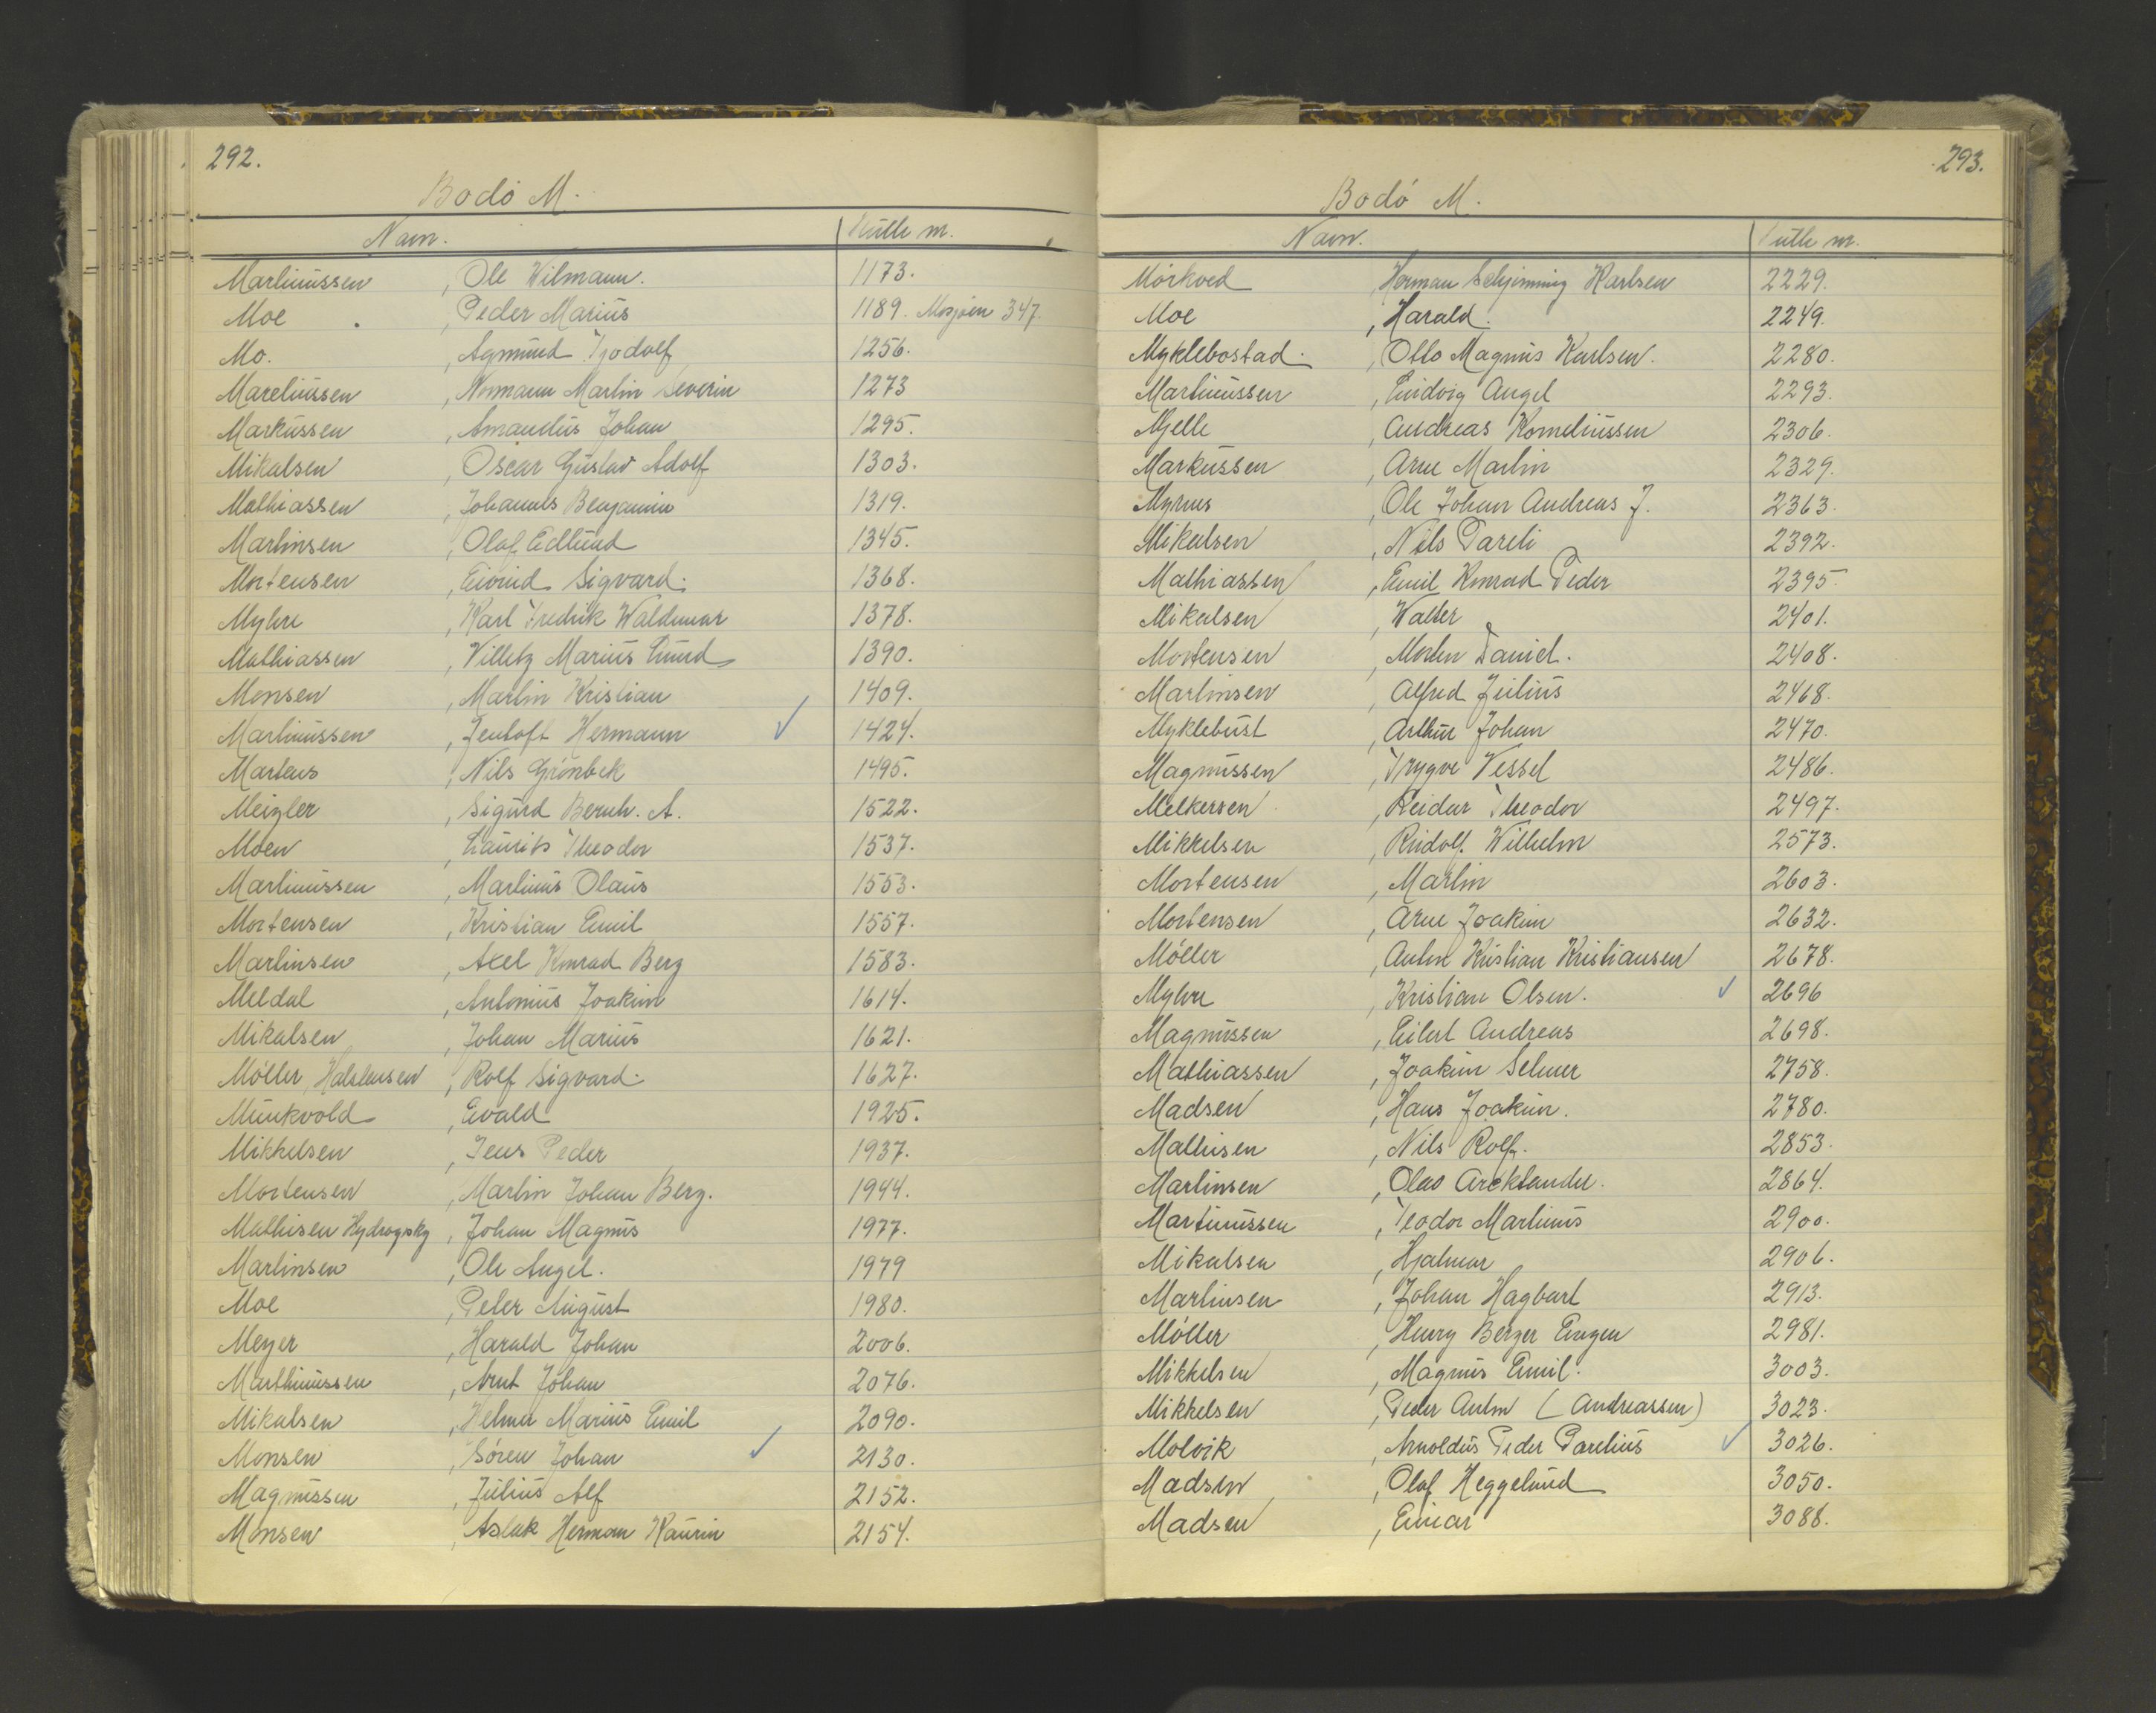 292.
Bodö M.
Navn. Rulle nr.
Martinussen , Ole Wilmann. 1173.
Moe , Peder Marius 1189. Mosjøen 347.
Mo. , Agmund Tjodolf 1256.
Mareliussen , Normann Martin Severin 1273
Markussen , Amandus Johan 1295.
Mikalsen , Oscar Gustav Adolf 1303.
Mathiassen , Johannes Benjamin 1319.
Martinsen , Olaf Edlund 1345.
Mortensen , Eivind Sigvard. 1368.
Myhre , Karl Fredrik Waldemar 1378.
Mathiassen , Villitz Marius Lund 1390.
Monsen , Martin Kristian 1409.
Martinussen , Jentoft Hermann ✓ 1424.
Martens , Nils Grönbek 1495.
Meizler , Sigurd Bernh. A. 1522.
Moen , Laurits Theodor 1537.
Martinussen , Martinus Olaus 1553.
Mortensen , Kristian Emil 1557.
Martinsen , Axel Konrad Berg 1583.
Meldal , Antonius Joakim 1614.
Mikalsen , Johan Marius 1621.
Möller Halstensen , Rolf Sigvard. 1627.
Munkvold , Evald 1925.
Mikkelsen , Jens Peder 1937.
Mortensen , Martin Johan Berg. 1944.
Mathisen , Johan Magnus 1977.
Martinsen , Ole Angel. 1979
Moe , Peter August 1980.
Meyer , Harald Johan 2006.
Marthinussen , Arnt Johan 2076.
Mikalsen , Helmer Marius Emil 2090.
Monsen , Sören Johan ✓ 2130.
Magnussen , Julius Alf 2152.
Monsen , Aslak Herman Kaurin 2154.
293.
Bodö M.
Navn. Rulle nr.
Mörkved , Herman Schjenning Karlsen 2229.
Moe , Harald. 2249.
Myklebostad. , Otto Magnus Karlsen. 2280.
Martinussen , Ludvig Angel 2293.
Mjelle , Andreas Korneliussen 2306.
Markussen , Arne Martin 2329.
Myrnes , Ole Johan Andreas J. 2363.
Mikalsen , Nils Pareli 2392.
Mathiassen , Emil Konrad Peder 2395.
Mikalsen , Walter 2401.
Mortensen , Morten Daniel. 2408.
Martinsen , Alfred Julius 2468.
Myklebust , Arthur Johan 2470.
Magnussen , Trygve Vessel 2486.
Melkersen , Reidar Theodor 2497.
Mikkelsen , Rudolf. Wilhelm 2573.
Mortensen , Martin 2603.
Mortensen , Arne Joakim 2632.
Möller , Anton Kristian Kristiansen 2678.
Myhre , Kristian Olsen. ✓ 2696
Magnussen , Eilert Andreas 2698.
Mathiassen , Joakim Selmer 2758.
Madsen , Hans Joakim. 2780.
Mathisen , Nils Rolf. 2853.
Martinsen , Olav 2864.
Martinussen , Teodor Martinus 2900.
Mikalsen , Hjalmar 2906.
Martinsen , Johan Hagbart 2913.
Möller , Henry Berger Eugen 2981.
Mikkelsen , Magnus Emil. 3003.
Mikkelsen , Peder Anton (Andreassen) 3023.
Molvik , Arnoldus Peder Parelius ✓ 3026.
Madsen , Olaf Heggelund 3050.
Madsen , Einar 3088.